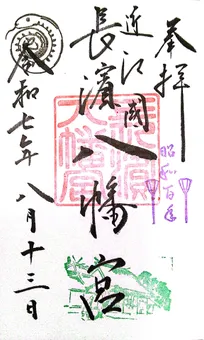 奉拝
昭和百年
近江國
長濱八幡宮
令和七年八月十三日